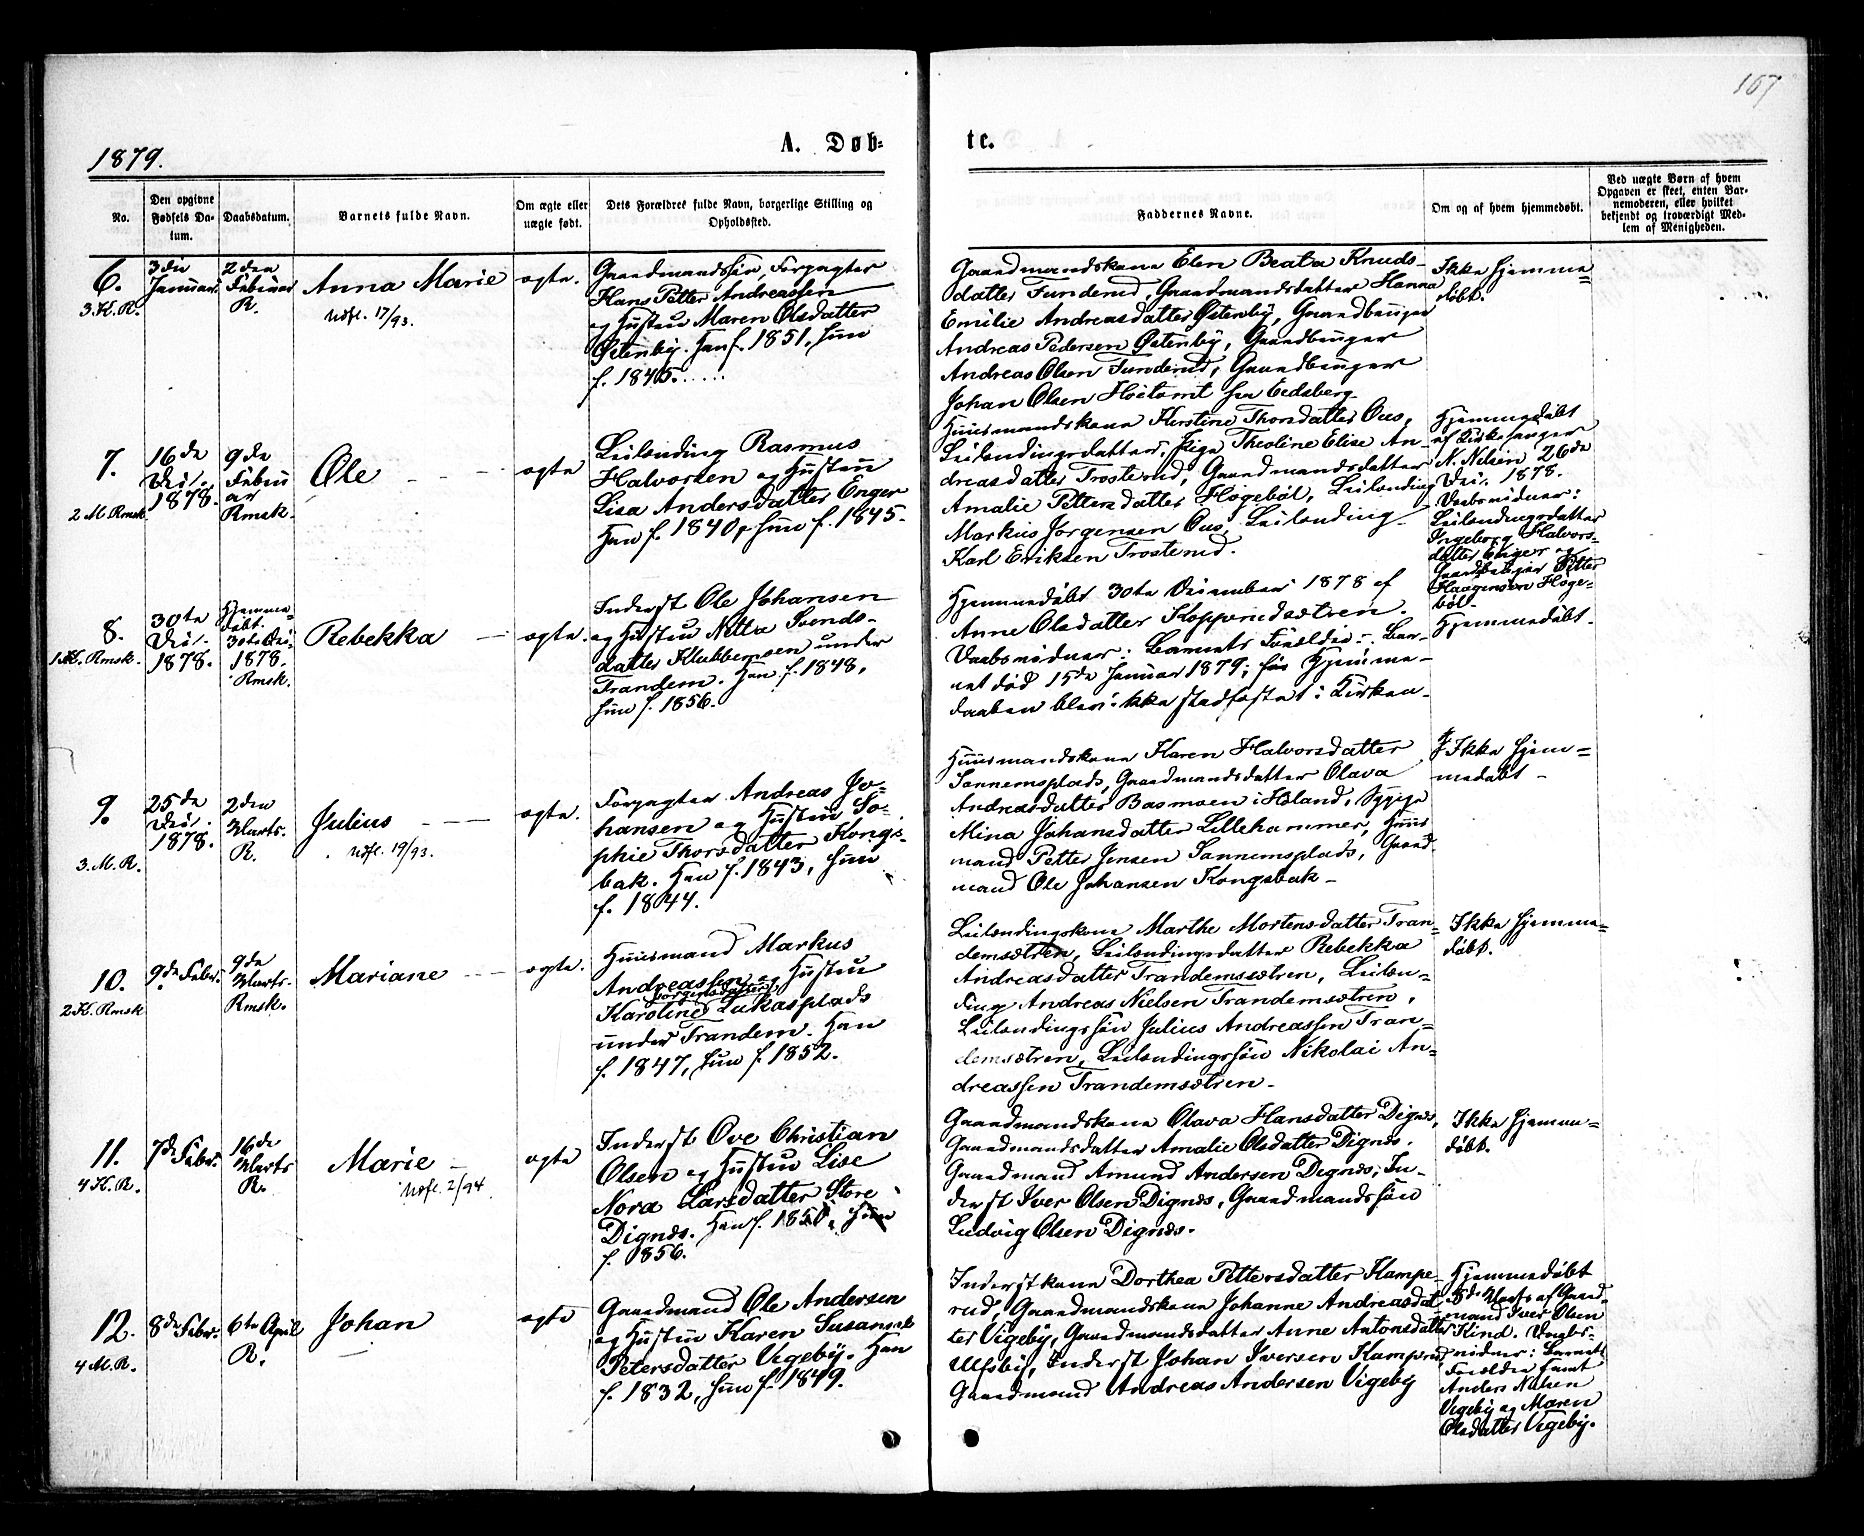 167
1879.
A. Døb-
te.
No.
Den opgivne Fødsels Da-
tum.
Daabsdatum.
Barnets fulde Navn.
Om ægte eller
uægte født.
Dets Forældres fulde Navn, borgerlige Stilling og
Opholdssted.
Faddernes Navne.
Om og af hvem hjemmedøbt.
Ved uægte Børn af hvem
Opgaven er skeet, enten Bar-
nemoderen, eller hvilket
bekjendt og troværdigt Med-
lem af Menigheden.
6.
3. K. R.
3die
Januar.
2den
Februar
R.
Anna Marie
Udfl. 17/93.
ægte.
Gaardmandssøn, Forpagter
Hans Petter Andreassen
og Hustru Maren Olsdatter
Østenby. Han f. 1851, hun
f. 1845.....
Gaardmandskone Elen Beata Knuds-
datter Tunderud, Gaardmandsdatter Hanna
Emilie Andreasdatter Østenby, Gaardbruger
Andreas Pedersen Østenby, Gaardbruger
Andreas Olsen Tunderud, Gaardbruger
Johan Olsen Høitomt fra Eidsberg.
Ikke hjemme=
døbt.
7.
2 M. Rmsk.
16de
Dec.
1878.
9de
Febru
ar
Rmsk.
Ole
ægte
Leilending Rasmus
Halvorsen og Hustru
Lisa Andersdatter Enger
Han f. 1840, hun f. 1845.
Huusmandskone Kirstine Thorsdatter Ous,
Leilendingsdatter, Pige Theoline Elise An-
dreasdatter Trosterud, Gaardmandsdatter
Amalie Pettersdatter Høgebøl, Leilending
Markus Jørgensen Ous, Leilending
Karl Eriksen Trosterud.
Hjemmedøbt
af Kirkesanger
N. Nilsen 26de
Dec. 1878.
Daabsvidner:
Leilendingsdatter
Ingeborg Halvors-
datter Enger og
Gaardbruger Petter
Haagensen Høge-
bøl.
8.
1K. Rmsk.
30te
Dec.
1878.
Hjemme-
døbt.
30te De-
1878.
Rmsk.
Rebekka
ægte.
Inderst Ole Johansen
og Hustru Netta Svends-
datter Klubbemsen under
Trandem. Han f. 1848,
hun f. 1856.
Hjemmedøbt 30te December 1878 af
Anne Olsdatter Kopperudsætren.
Daabsvidner: Barnets Forældre.- Bar-
net død 15de Januar 1879; før Hjemme-
daaben blev ikke stadfæstet i Kirken.
Hjemmedøbt.
9.
3. M. R.
25de
Dec.
1878.
2den
Marts.
R.
Julius
Udfl. 19/93.
ægte.
Forpagter Andreas Jo-
hansen og Hustru So-
phie Thorsdatter Kongs-
bak. Han f. 1843, hun
f. 1844.
Huusmandskone Karen Halvorsdatter
Sannemsplads, Gaardmandsdatter Olava
Andreasdatter Basmoen i Høland, Sypige
Mina Johansdatter Lillehammer, Huus
mand Petter Jensen Sannemsplads, Gaard
mand Ole Johansen Kongsbak-
Ikke hjem=
medøbt-
10.
2 K. Rmsk
9de Febr.
9de
Marts.
Rmsk.
Mariane
ægte.
Huusmand Markus
Andreassen og Hustru
Jørgensdatter
Karoline Lukasplads
under Trandem. Han
f. 1847, hun f. 1852.
Leilendingskone Marthe Mortensdatter Tran-
demsætren, Leilendingsdatter Rebekka
Andreasdatter Trandemsætren, Leilen-
ding Andreas Nielsen Trandemsætren,
Leilendingssøn Julius Andreassen Tran-
demsætren, Leilendingssøn Nikolai An-
dreassen Trandemsætren-
Ikke hjemme-
døbt.
11.
4 K. R.
7de Febr.
16de
Marts
R.
Marie
Udfl. 2/94.
ægte
Inderst Ove Christian
Olsen og Hustru Lise
Nora Larsdatter Store
Dignæs. Han f. 1850, Hun
f. 1856.
Gaardmandskone Olava Hansdatter Dignæs,
Gaardmandsdatter Amalie Olsdatter Dignæs.
Gaardmand Amund Andersen Dignæs, In-
derst Iver Olsen Dignæs, Gaardmandssøn
Ludvig Olsen Dignæs.
Ikke hjemme-
døbt.
12.
4 M. R.
8de Febr.
6te April
R.
Johan
ægte
Gaardmand Ole Andersen
og Hustru Karen Susanna
Petersdatter Vigeby. Han
f. 1832, hun f. 1849.
Inderstkone Dorthea Pettersdatter Kampe-
rud, Gaardmandskone Johanne Andreasdat
ter Vigeby, Gaardmandsdatter Anne Antonsdatter
Ulfsby, Inderst Johan Iversen Kamperud,
Gaardmand Andreas Andersen Vigeby
Hjemmedøbt
8de Marts af Gaard-
mand Iver Olsen
Kind. Daabs-
vidner: Barnets
Forældre samt
Anders Nilsen
Vigeby og Maren
Olsdatter Vigeby.